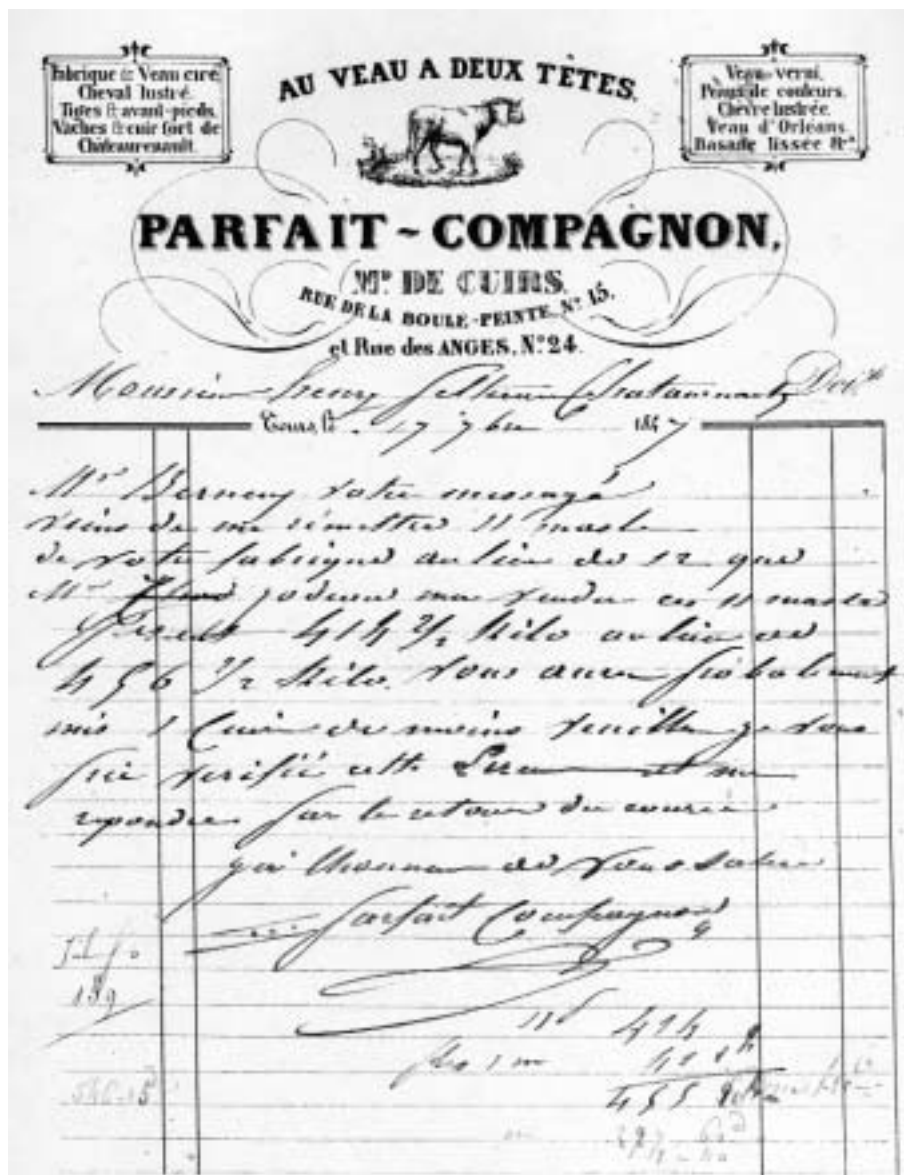 Fabrique de Veau ciré
Cheval lustré.
Tiges & avant-pieds.
Vaches & cuir fort de
Châteaurenault.
AU VEAU A DEUX TÊTES.
Veau verni.
Peaux de couleurs.
Chèvre lustrée.
Veau d'Orléans.
Basane lissée &ca
PARFAIT ~ COMPAGNON,
Md. DE CUIRS.
RUE DE LA BOULE-PEINTE, No. 15,
et Rue des ANGES, No. 24.
Monsieur Chataurenault Doit
Tours, le 17 7bre 1847
Mr votre messagé
viens de me rémettre 11 masle
de votre fabrique au lieu de 12 que
Mr ma vendu ces 11 masle
414 1/2 Kilo au lieu de
456 1/2 Kilo. Vous aurez probablement
mis 1 Cuir de moins veuillez je vous
prie verifié cette et me
repondre par le retour du courié
jai lhonneur de vous saluer
Parfait Compagnon
189
414
455